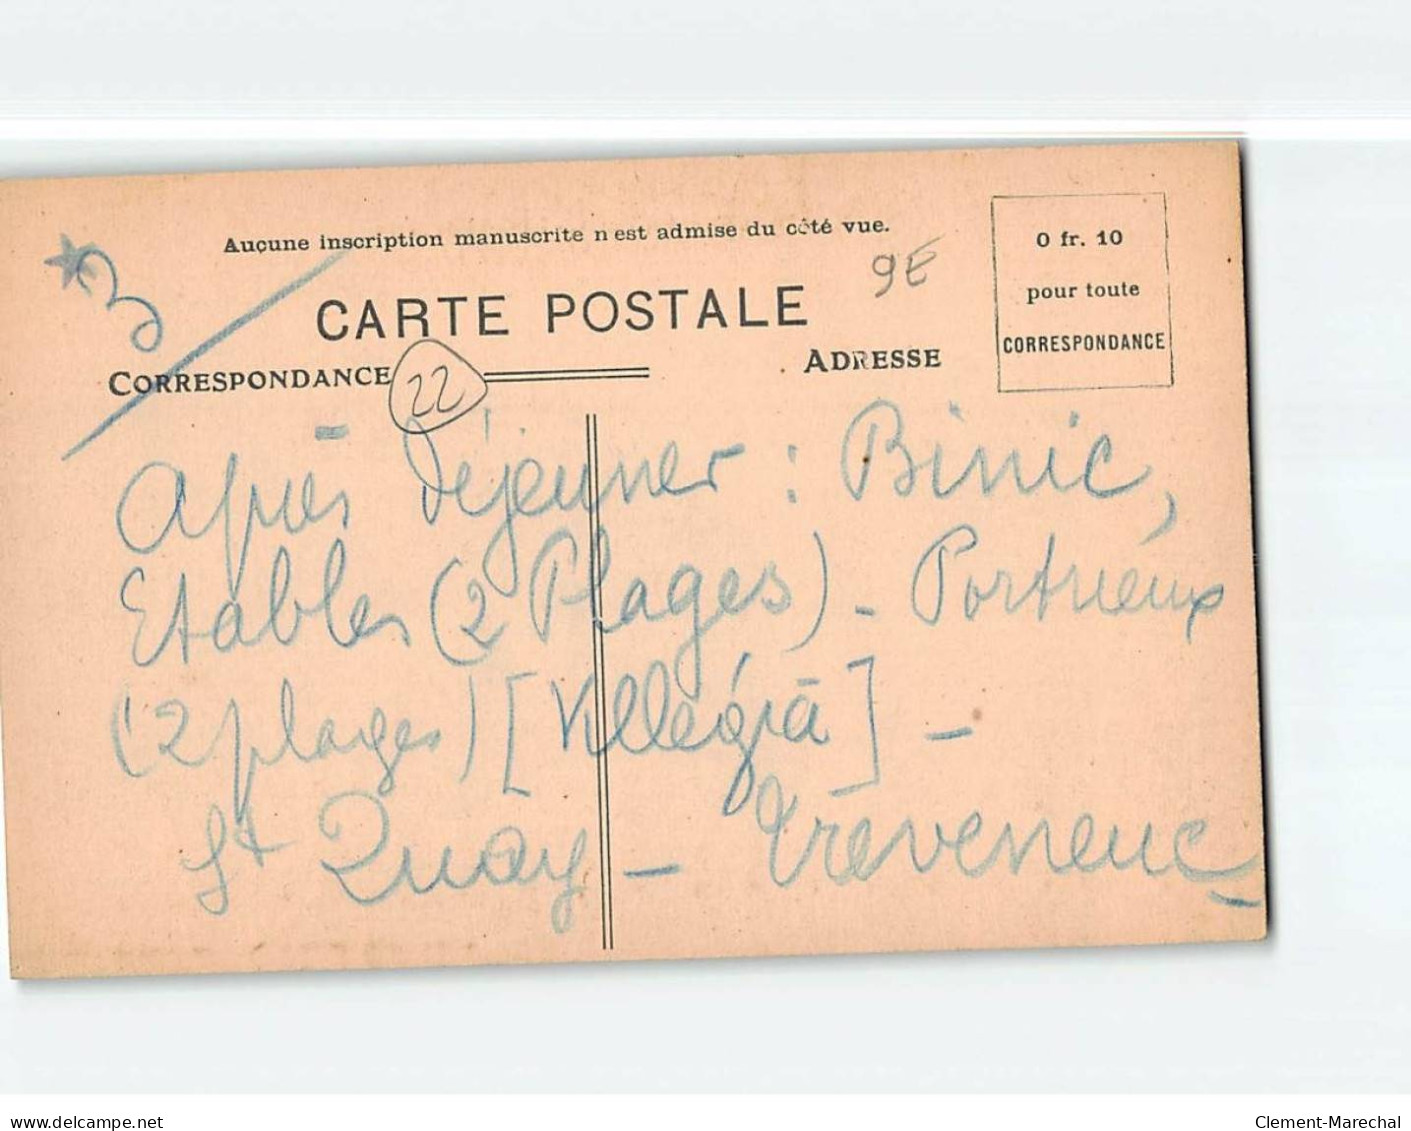 Aucune inscription manuscrite n est admise du côté vue.
3
9E
0 fr. 10
pour toute
CORRESPONDANCE
CARTE POSTALE
CORRESPONDANCE
22
ADRESSE
Après déjeuner : Binic,
Etables (2 Plages) - Portrieux
(2 plages) [Villégiā] -
St Quay - Treveneuc -
delcampe.net
Clement-Marechal